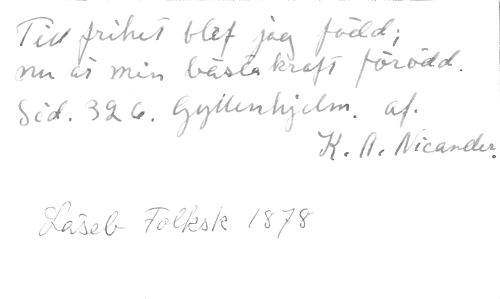 Till frihet blef jag född;
nu är min bästa kraft förödd.
Sid. 326. Gyllenhjelm. af.
K. A. Nicander.
Läseb Folksk 1878